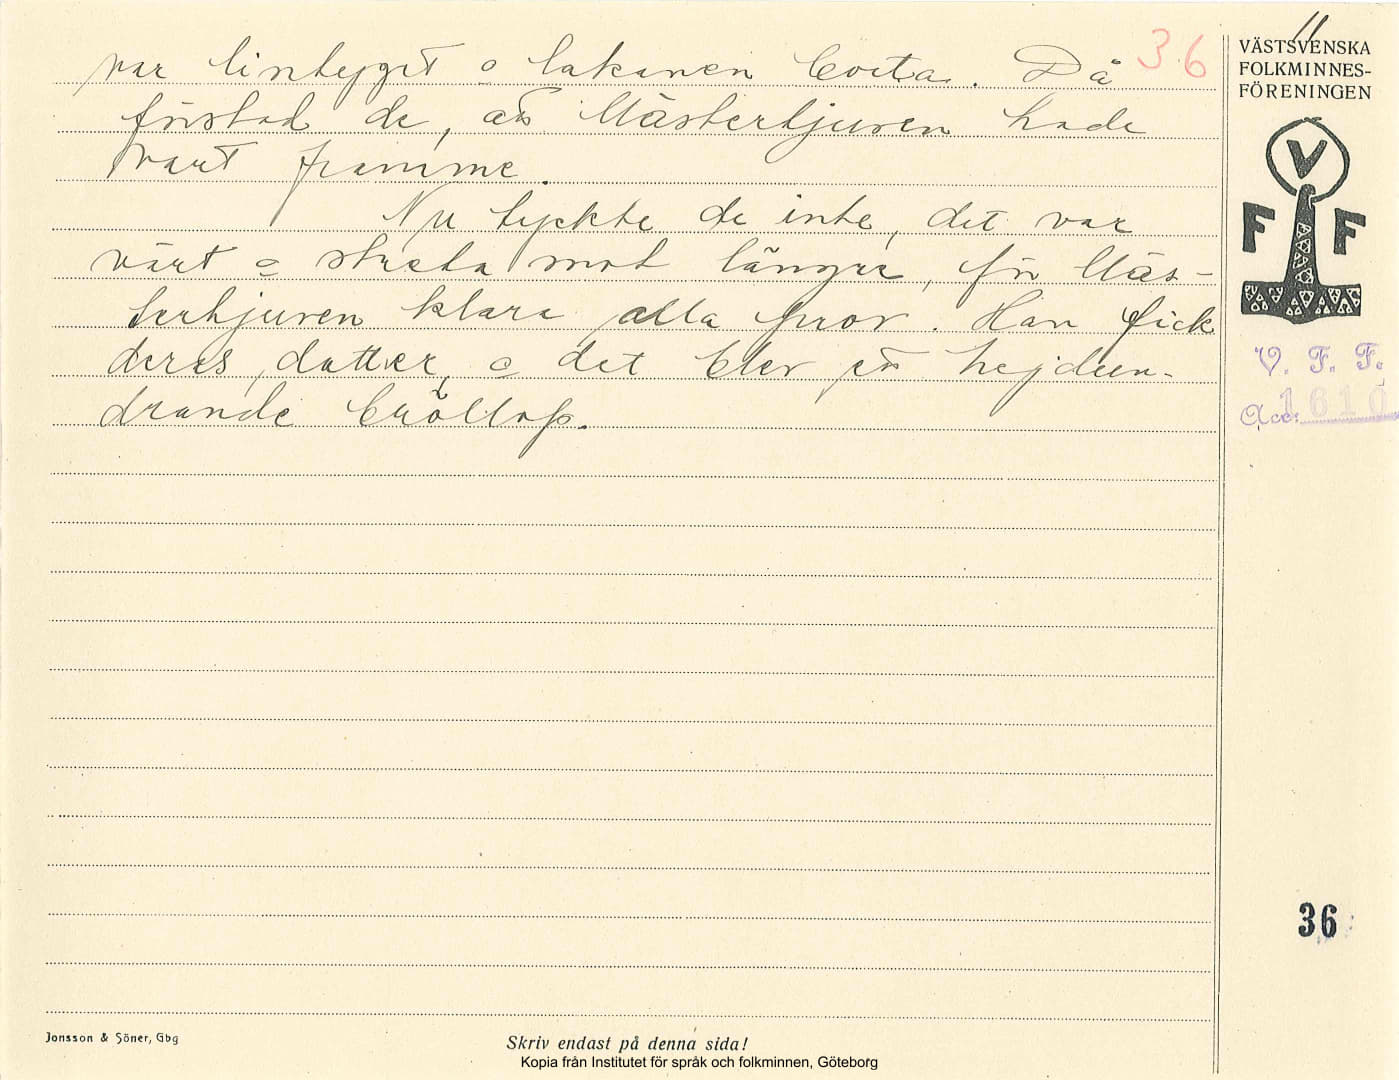 36
11
VÄSTSVENSKA
FOLKMINNES-
FÖRENINGEN
V
F F
V. F. F.
Acc. 1610
var lintyget o lakanen borta. Då
förstod de, att Mästertjuven hade
vart framme.
Nu tyckte de inte, det var
värt o streta mot längre, för Mäs-
tertjuven klara alla prov. Han fick
deras dotter, o det blev ett hejdun-
drande bröllop.
36
Jonsson & Söner, Gbg
Skriv endast på denna sida!
Kopia från Institutet för språk och folkminnen, Göteborg